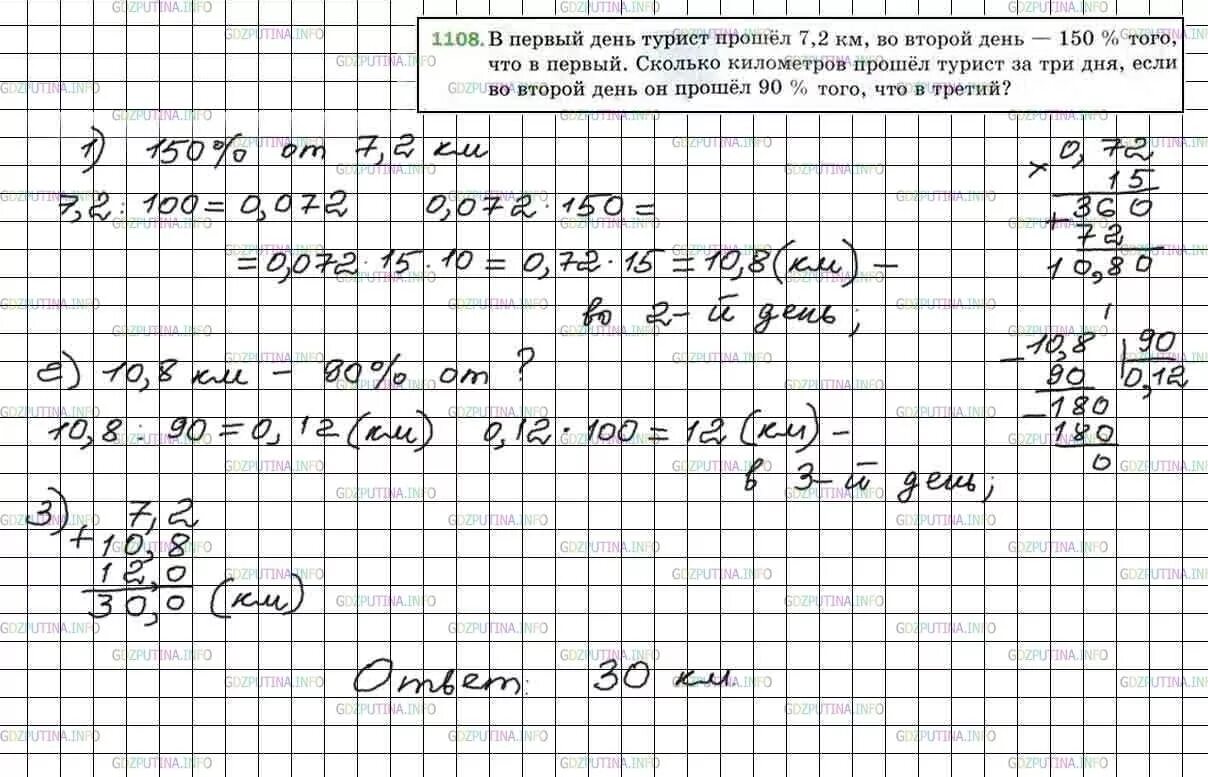 1108. В первый день турист прошёл 7,2 км, во второй день — 150 % того,
что в первый. Сколько километров прошёл турист за три дня, если
во второй день он прошёл 90 % того, что в третий?
1) 150% от 7,2 км
7,2 : 100 = 0,072 0,072 · 150 =
= 0,072 · 15 · 10 = 0,72 · 15 = 10,8 (км) –
во 2-й день;
× 0,72
15
+ 360
72
10,80
2) 10,8 км – 90% от ?
10,8 : 90 = 0,12 (км) 0,12 · 100 = 12 (км) –
в 3-й день;
– 10,8 90
90 0,12
– 180
180
0
3) 7,2
+ 10,8
12,0
30,0 (км)
Ответ: 30 км
GDZPUTINA.INFO